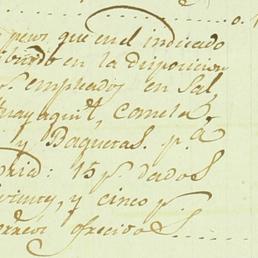 pesos que en el indicado
en la disposicion
s. empleados en Sal,
Guayaquil, Cometa
y Baquetas. p.a
: 15 p.s dados
veinte, y cinco p.s
ofrecidos